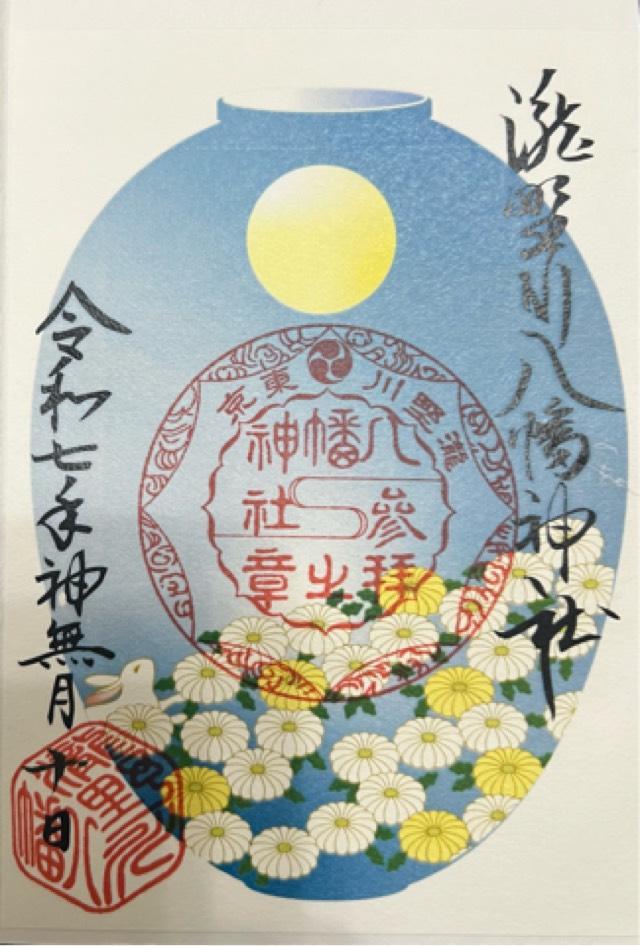 瀧野川八幡神社
東京瀧野川
八幡神社
参拝之章
令和七年神無月十日